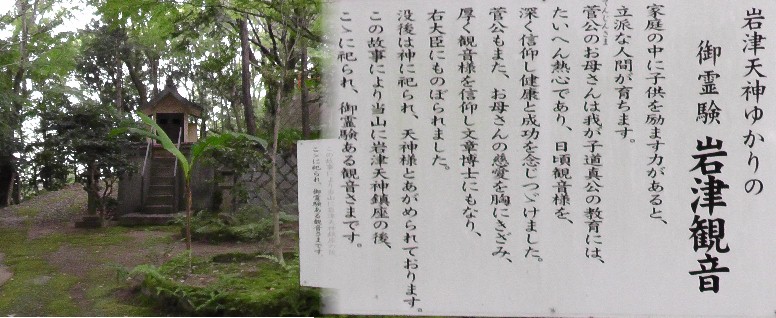 岩津天神ゆかりの
御霊験 岩津観音
家庭の中に子供を励ます力があると、
立派な人間が育ちます。
菅公のお母さんは我が子道真公の教育には、
たいへん熱心であり、日頃観音様を、
深く信仰し健康と成功を念じつゞけました。
菅公もまた、お母さんの慈愛を胸にきざみ、
厚く観音様を信仰し文章博士にもなり、
右大臣にものぼられました。
没後は神に祀られ、天神様とあがめられております。
この故事により当山に岩津天神鎮座の後、
こゝに祀られ、御霊験ある観音さまです。
この故事により当山に岩津天神鎮座の後、
こゝに祀られ、御霊験ある観音さまです。